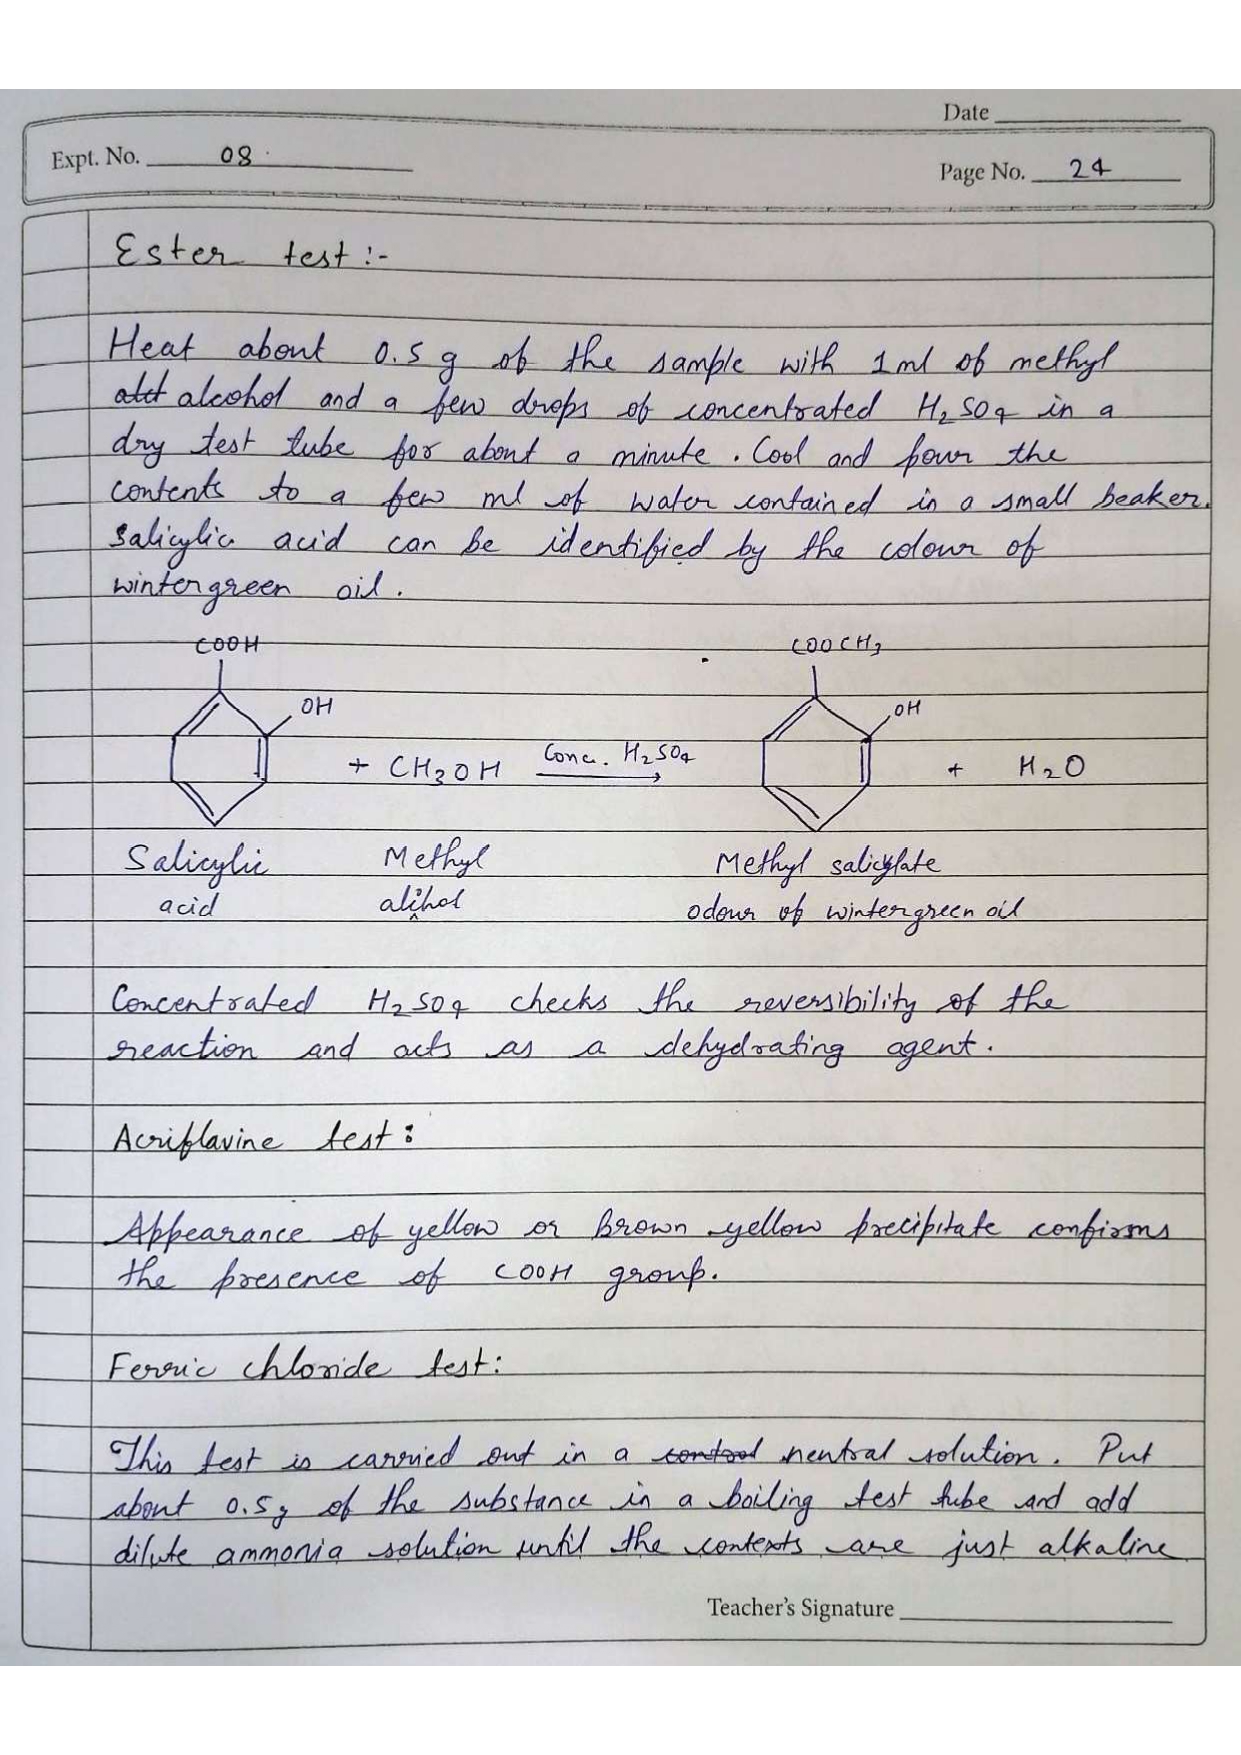 Date
Expt. No. 08
Page No. 24
Ester test :-
Heat about 0.5 g of the sample with 1 ml of methyl
alct alcohol and a few drops of concentrated H₂SO₄ in a
dry test tube for about a minute. Cool and pour the
contents to a few ml of water contained in a small beaker.
Salicylic acid can be identified by the colour of
wintergreen oil.
COOH COOCH₃
OH OH
+ CH₃OH Conc. H₂SO₄ + H₂O
Salicylic Methyl Methyl salicylate
acid alcohol odour of wintergreen oil
Concentrated H₂SO₄ checks the reversibility of the
reaction and acts as a dehydrating agent.
Acriflavine test :
Appearance of yellow or Brown yellow precipitate confirms
the presence of COOH group.
Ferric chloride test:
This test is carried out in a control neutral solution. Put
about 0.5g of the substance in a boiling test tube and add
dilute ammonia solution until the contexts are just alkaline
Teacher's Signature